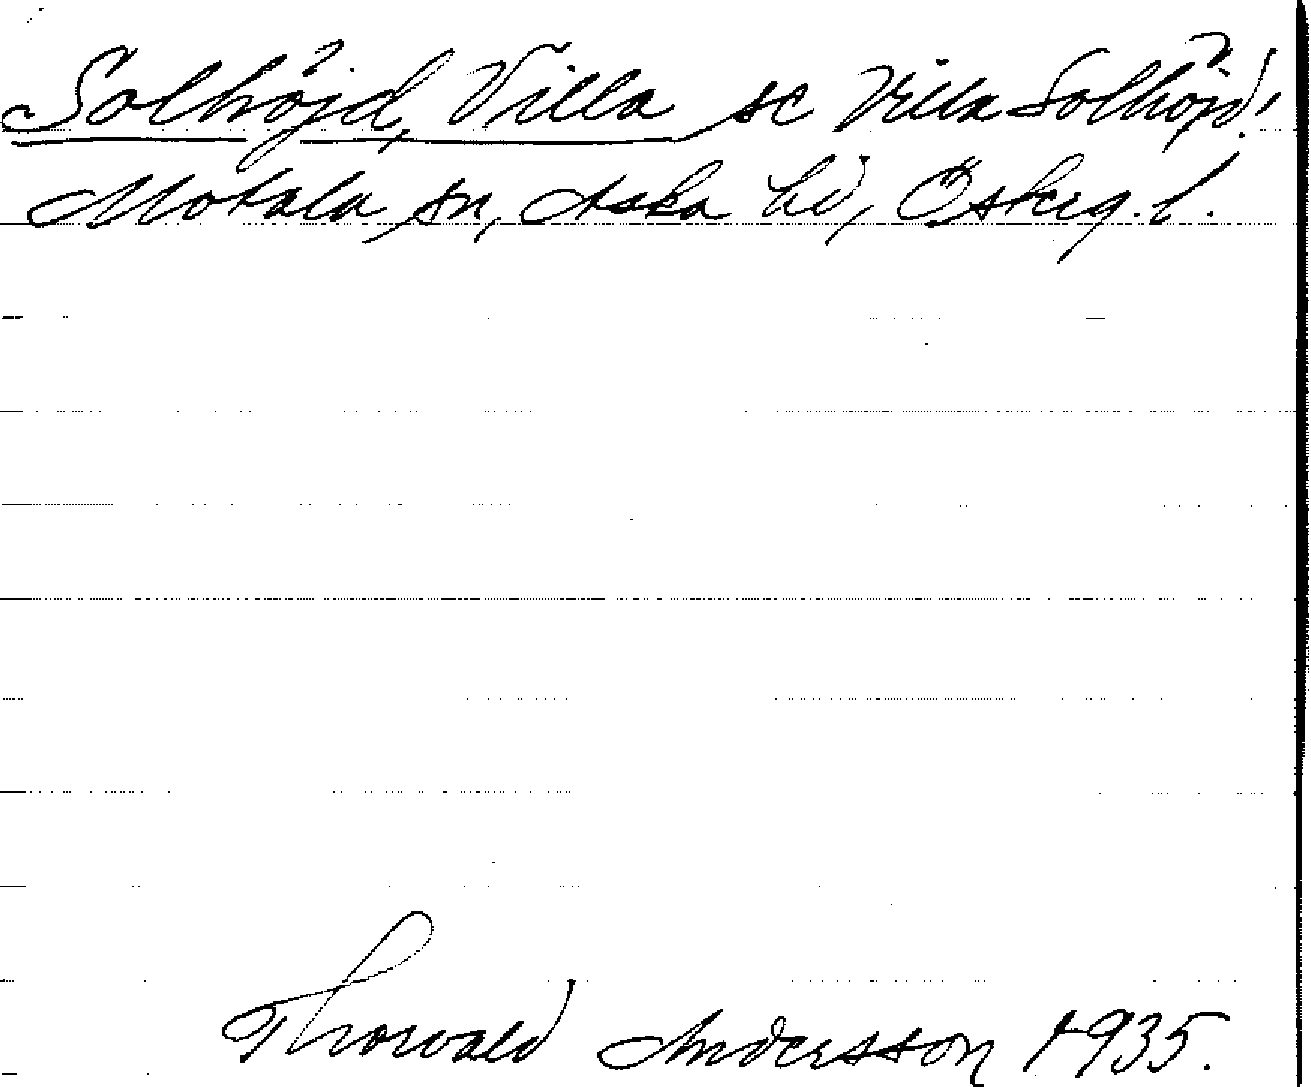 Solhöjd, Villa se Villa Solhöjd!
Motala sn, Aska hd, Österg. l.
Thorvald Andersson 1935.